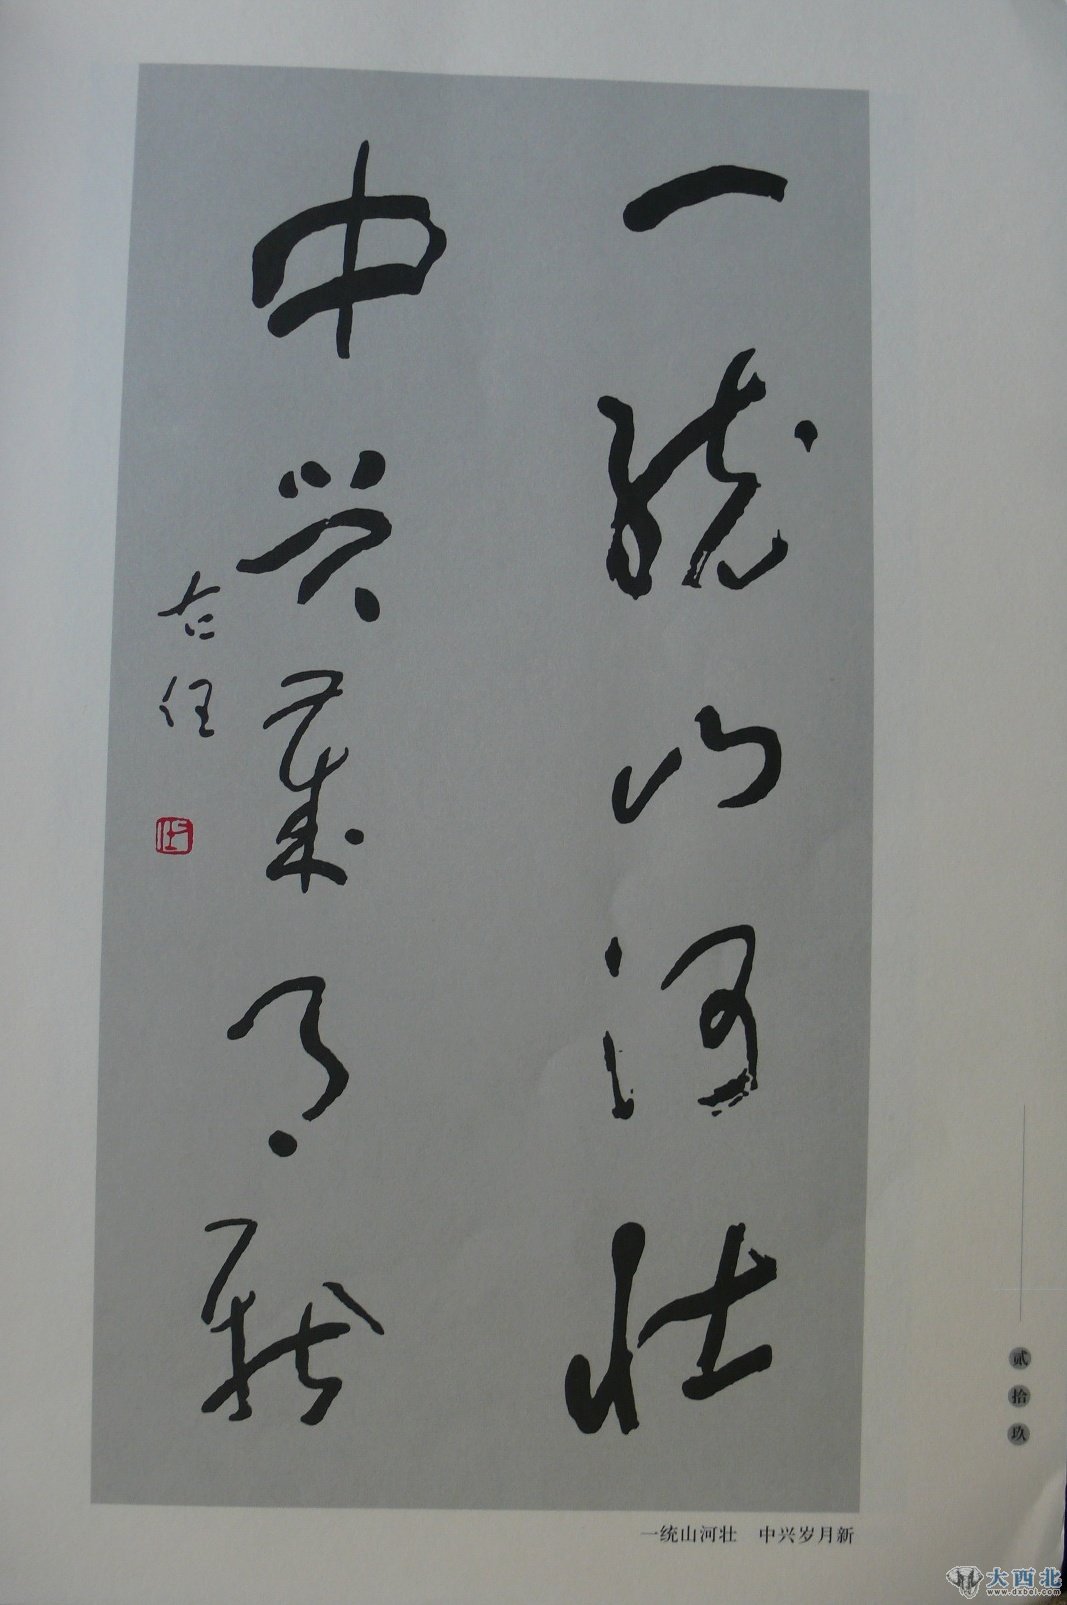 一统山河壮
中兴岁月新
右任
贰拾玖
一统山河壮 中兴岁月新
大西北
www.dxbei.com